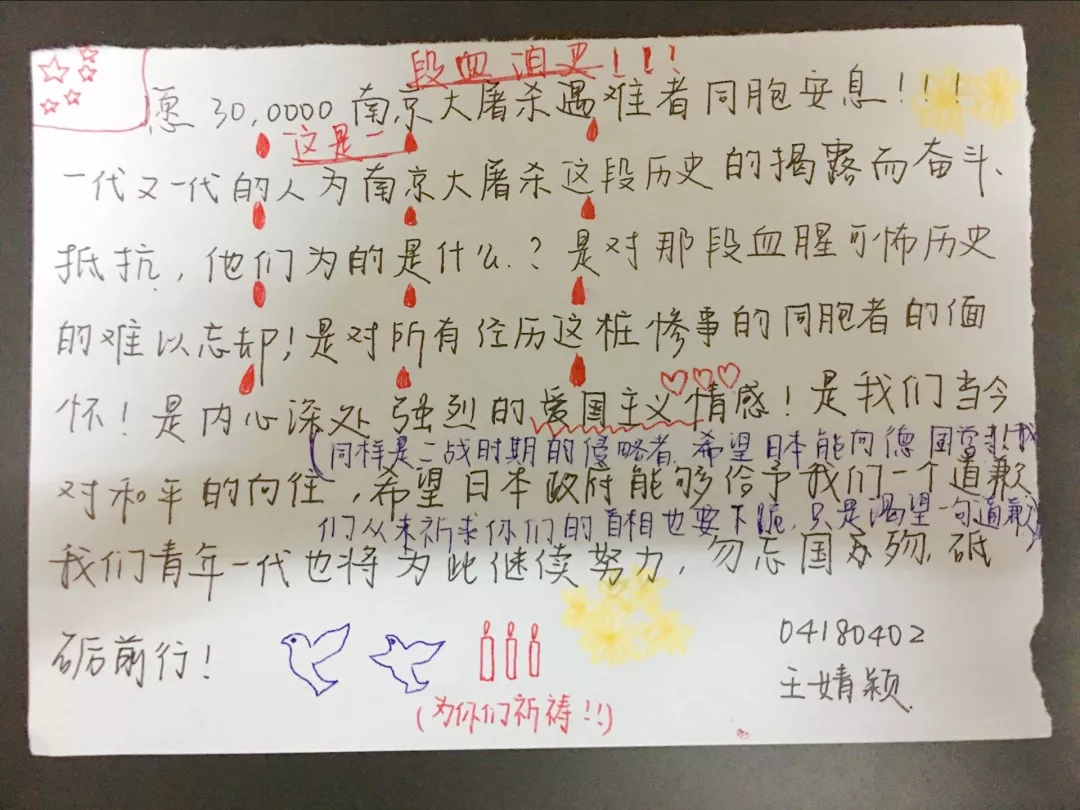 段血泪史!!!
愿30,0000南京大屠杀遇难者同胞安息!!!
这是一
一代又一代的人为南京大屠杀这段历史的揭露而奋斗、
抵抗,他们为的是什么.?是对那段血腥可怖历史
的难以忘却!是对所有经历这桩惨事的同胞者的缅
怀!是内心深处强烈的爱国主义情感!是我们当今
(同样是二战时期的侵略者,希望日本能向德国 !我
对和平的向往,希望日本政府能够给予我们一个道歉
们从未祈求你们的首相也要下跪,只是渴望一句道歉)
我们青年一代也将为此继续努力,勿忘国 ,砥
砺前行!
04180402
王婧颖
(为你们祈祷!!)